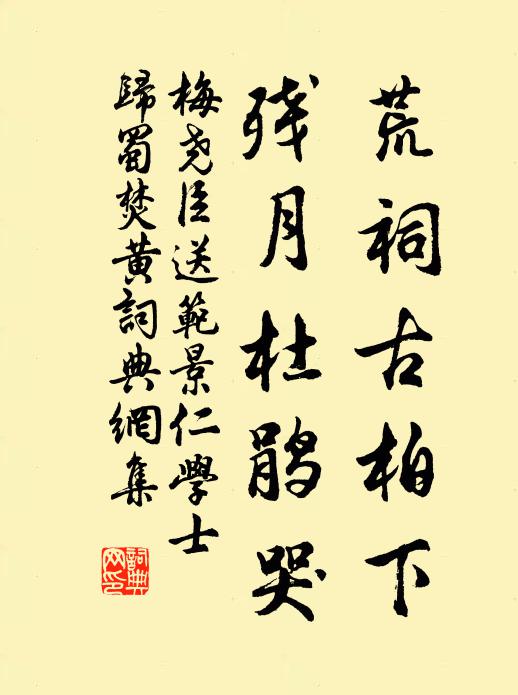 荒祠古柏下
残月杜鹃哭
梅尧臣送範景仁學士
歸蜀焚黄詞典網集
詞典
网印